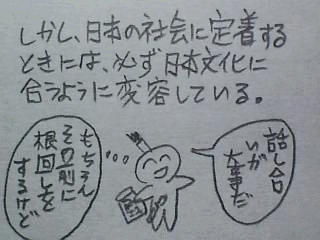 しかし、日本の社会に定着する
ときには、必ず日本文化に
合うように変容している。
話し合
いが
大事だ
もちろん
その前に
根回しを
するけど